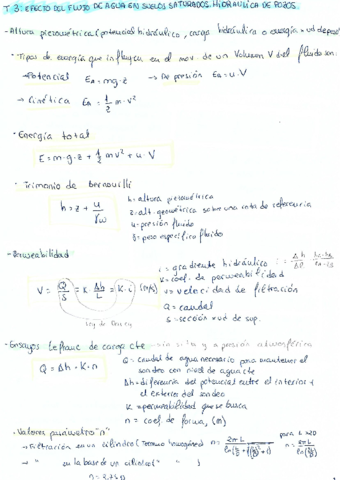 T 3: EFECTO DEL FLUJO DE AGUA EN SUELOS SATURADOS. HIDRAULICA DE POZOS.
- Altura piezométrica (potencial hidráulico, carga hidráulica o energía x ud de peso)
· Tipos de energía que influyen en el mov. de un Volumen V del fluido son:
- Potencial EA = m·g·z -> De presión EA = u·V
- Cinética EA = 1/2 m·v²
· Energía total
E = m·g·z + 1/2 m v² + u·V
· Trinomio de bernouilli
h = z + u/γw
h = altura piezométrica
z = alt. geométrica sobre una cota de referencia
u = presión fluido
γ = peso específico fluido
- Permeabilidad
V = Q/S = K · Δh/L = K·i (m/s)
Ley de Darcy
i = gradiente hidráulico
K = coef. de permeabilidad
v = velocidad de filtración
Q = caudal
S = sección
- Ensayos Lefranc de carga cte
Q = Δh·K·n
Q = caudal de agua necesario para mantener el
sondeo con nivel de agua cte
Δh = diferencia del potencial entre el interior y
el exterior del sondeo
K = permeabilidad que se busca
n = coef. de forma, (m)
- Valores parámetro "n"
- Filtración en un cilindro (Terreno homogéneo)
- " en la base de un cilindro ( " " )